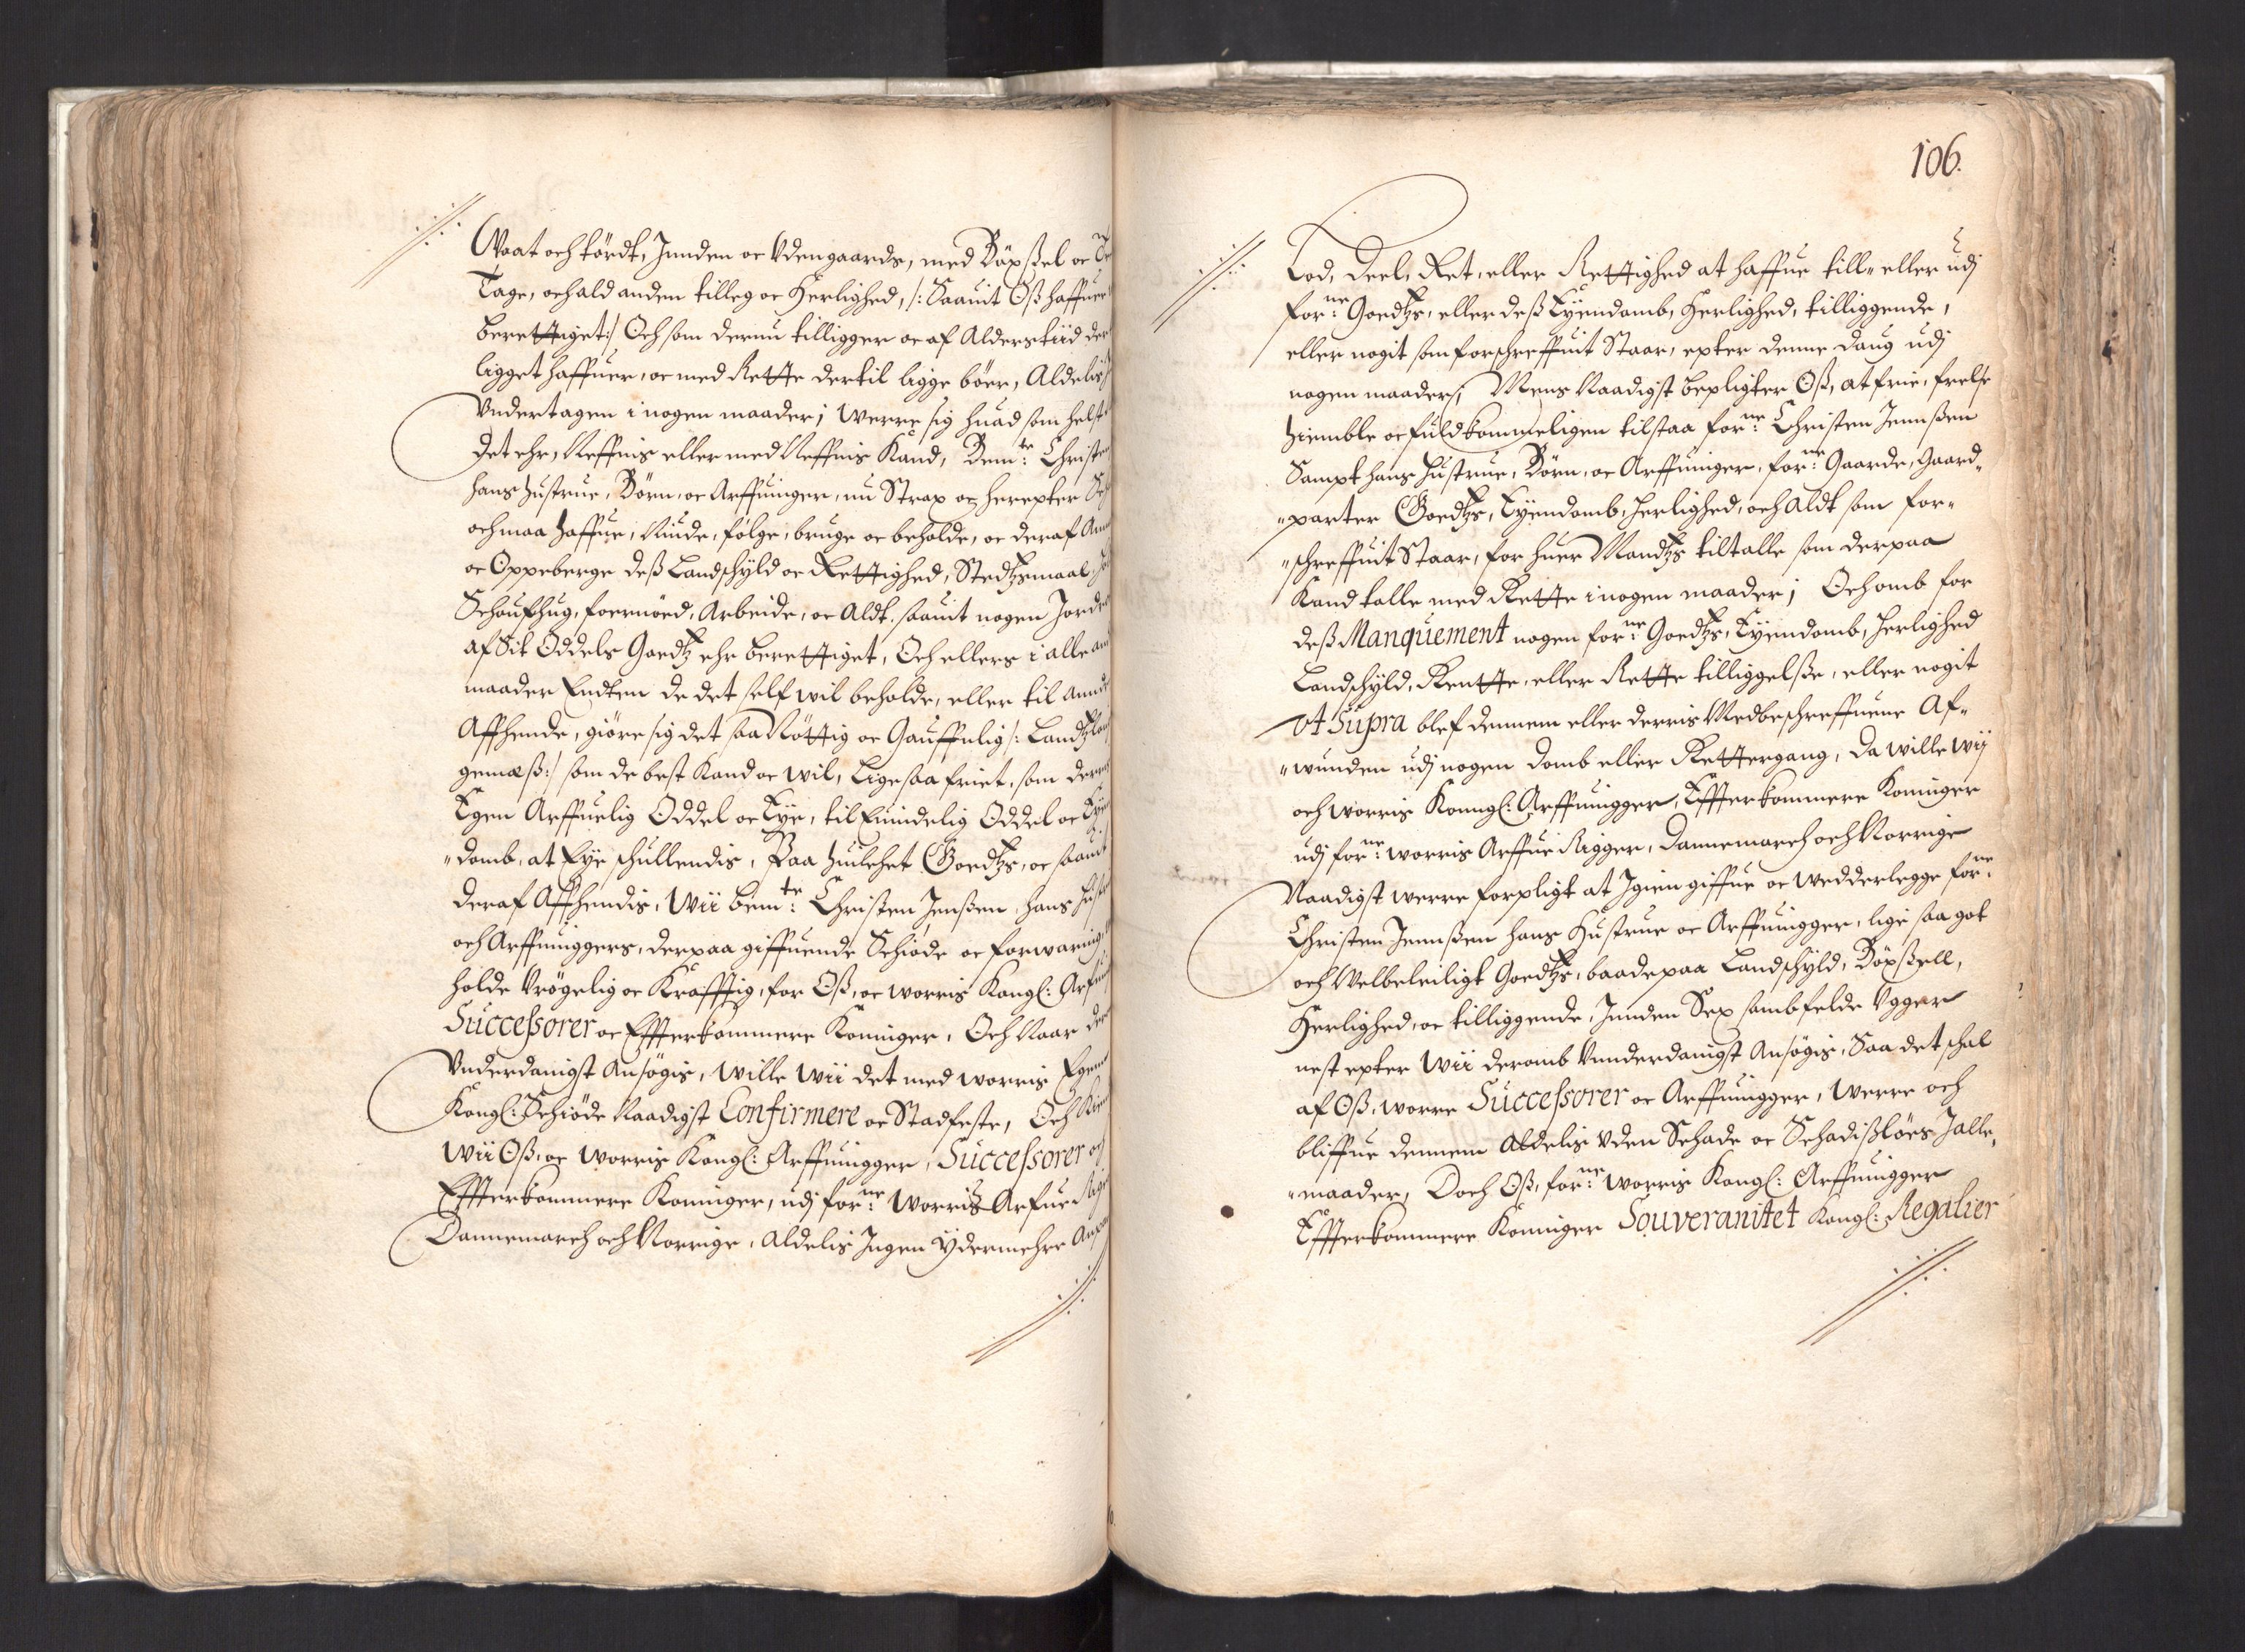 Waat och tördt, Innden oc Udengaards, med Böxßel oc
Tage, och ald anden tilleg oc Herlighed, /: Saauit Oß haffuer
berettiget :/ Och som der nu tilligger oc af Alders tiid der
ligget haffuer, oc med Rette dertil ligge böer, Aldelis
Undertagen i nogen maader; Werre sig huad som helst
det ehr, Neffnis eller med Neffnis Kand, Bemte: Christen
hans hustrue, Börn, oc Arffuinger, nu Strax oc herepter
och maa haffue, Niude, følge, bruge oc beholde, oc deraf
oc Oppeberge deß Landschyld oc Rettighed, Stedtzsmaal,
Schoufhug, foernöed, Arbeide, oc Aldt, saauit nogen Jorde
af Sit Oddels Goedtz ehr berettiget, Och ellers i alle
maader Endten de det self wil beholde, eller til Annde
Affhende, giöre sig det saa Nöttig oc Gauffnlig /: Landtzlou
gemæß :/ som de best Kand oc wil, Ligesaa friet, som derris
Egen Arffuelig Oddel oc Eye, til Euindelig Oddel oc
"domb, at Eye schullendis, Paa huilchet Goedtzs, oc saauit
deraf Affhendis, Wii bemte: Christen Jenßen, hans
och Arffuinggers, derpaa giffuende Schiöde oc forwaring,
holde Urögelig oc Krafftig, for Oß, oc worris Kongl:
Successorer oc Effterkommere Koninger, Och Naar
Underdanigst Ansögis, Wille Wii det med worris Egen
Kongl: Schiöde Naadigst Confirmere oc Stadfeste, Och
Wii Oß, oc Worris Kongl: Arffuingger, Successorer
Effterkommere Koninger, udj forne: Worris Arfue
Dannemarch och Norrige, Aldelis Ingen Ydermehre
106.
Lod, Deel, Ret, eller Rettighed at haffue till- eller udj
forne: Goedtzs, eller deß Eyendomb, Herlighed, tilliggende,
eller nogit som forschreffuit Staar, epter denne Daug udj
nogen maader; Mens Naadigst bepligter Oß, at frie, frelse
hiemble oc fuldkommeligen tilstaa forne: Christen Jennßen
Sampt hans hustrue, Börn, oc Arffuinger, forne: Gaarde, Gaard-
"parter Goedtzs, Eyendomb, Herlighed, och Aldt som for-
"schreffuit Staar, for huer Mandtzs tiltalle som derpaa
Kand talle med Rette i nogen maader; Och omb for
deß Manquement nogen forne: Goedtzs, Eyendomb, Herlighed
Landschyld, Rentte, eller Rette tilliggelße, eller nogit
ut Supra blef dennem eller derris Medbeschreffuene Af-
"wunden udj nogen Domb eller Rettergang, Da wille wij
och worris Konngl: Arffuingger, Effterkommere Koninger
udj forne: worris Arffue Rigger, Dannemarch och Norrige
Naadigst werre forpligt at Igien giffue oc wedderlegge forne:
Christen Jennßen hans Hustrue oc Arffuingger, lige saa got
och Welbeleiligt Goedtzs, baade paa Landschyld, Böxßell,
Herlighed, oc tilliggende, Innden Sex sambfelde Ugger
nest epter Wii deromb Unnderdanigst Ansögis, Saa det schal
af Oß, worre Successorer oc Arffuingger, Werre och
bliffue dennem Aldelis Uden Schade oc Schadißlöes Jalle,
"maader, Doch Oß, forne: Worris Kongl: Arffuingger
Effterkommere Koninger Souveranitet Kongl: Regalier